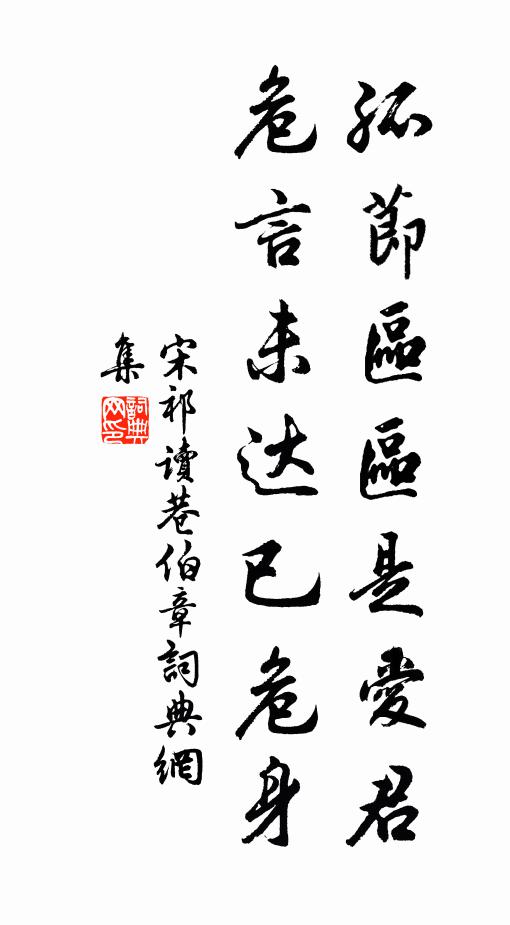 孤節區區是愛君
危言未达已危身
宋祁讀巷伯章詞典網
集
詞典
网印